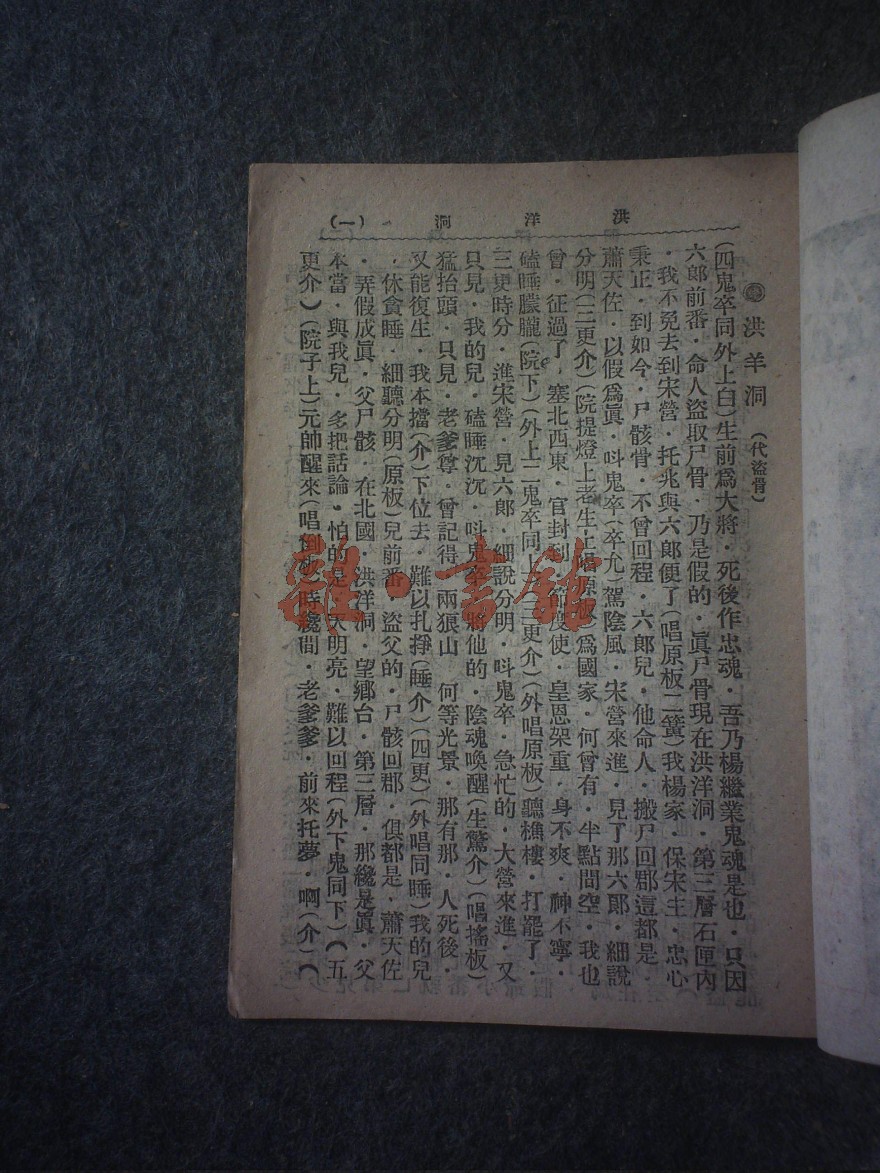 洪洋洞（一）
洪羊洞（代盜骨）
（四鬼卒同外上白）生前爲大將．死後作忠魂．吾乃楊繼業鬼魂是也．只因
六郎前番．命人盜取尸骨．乃是假的．眞尸骨現在洪洋洞．第三層石匣內
．我不免去到宋營．托兆與六郎便了（唱原板二簧）我楊家．保宋主．忠心
秉正．到如今．尸骸骨．不曾回程．六郎兒．他命人．搬尸回郡這都是．
蕭天佐．以假爲眞．呌鬼卒（卒允）駕陰風．宋營來進．見了那六郎．細說
分明（二更介）（院提燈上老生上唱原板）爲國家．何曾有．半點間空．我也
曾．征過了．塞北西東．官封到．節度使．皇恩架重．身不爽．神不寧．
磕睡朦朧（院下）（外上二鬼卒同上）（三更介）（外唱原板）聽樵樓．打罷了．
三更時分．進宋營．見六郎．細說分明．呌鬼卒．急忙的．大營來進．又
只見．我的兒．磕睡沉沉．呌鬼卒．將他的．陰魂喚醒（生驚介）（唱搖板）
猛抬頭．只見．老爹尊．曾記得．兩狼山．何等光景．那有那．人死後．
又能復生．我本擋（介）下位去．難以扎掙（睡介）（四更）（外唱同睡）我的兒
．休貪睡．細聽分明（原板）兒前番．盜父的．尸骸回郡．俱都是．蕭天佐
．弄假成眞．父尸骸．在北國．洪洋洞．望鄉台．第三層．那纔是眞．父
本當．與我兒．多把話論．怕的是．天明亮．難以回程（外下鬼同下）（五
更介）（院子上）元帥醒來（唱倒板）時纔間．老爹爹．前來托夢．啊（介）（
雜·書館